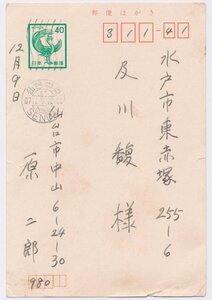 郵便はがき
40
日本郵便
311-41
水戸市東赤塚255-6
及川馥様
12月9日
仙台市中山6-24-30
原二郎
980